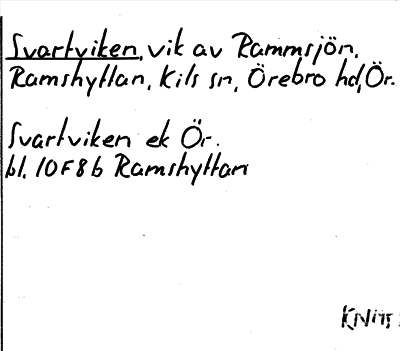 Svartviken, vik av Rammsjön,
Ramshyttan, Kils sn, Örebro hd, Ör.
Svartviken ek Ör.
bl. 10F8b Ramshyttan